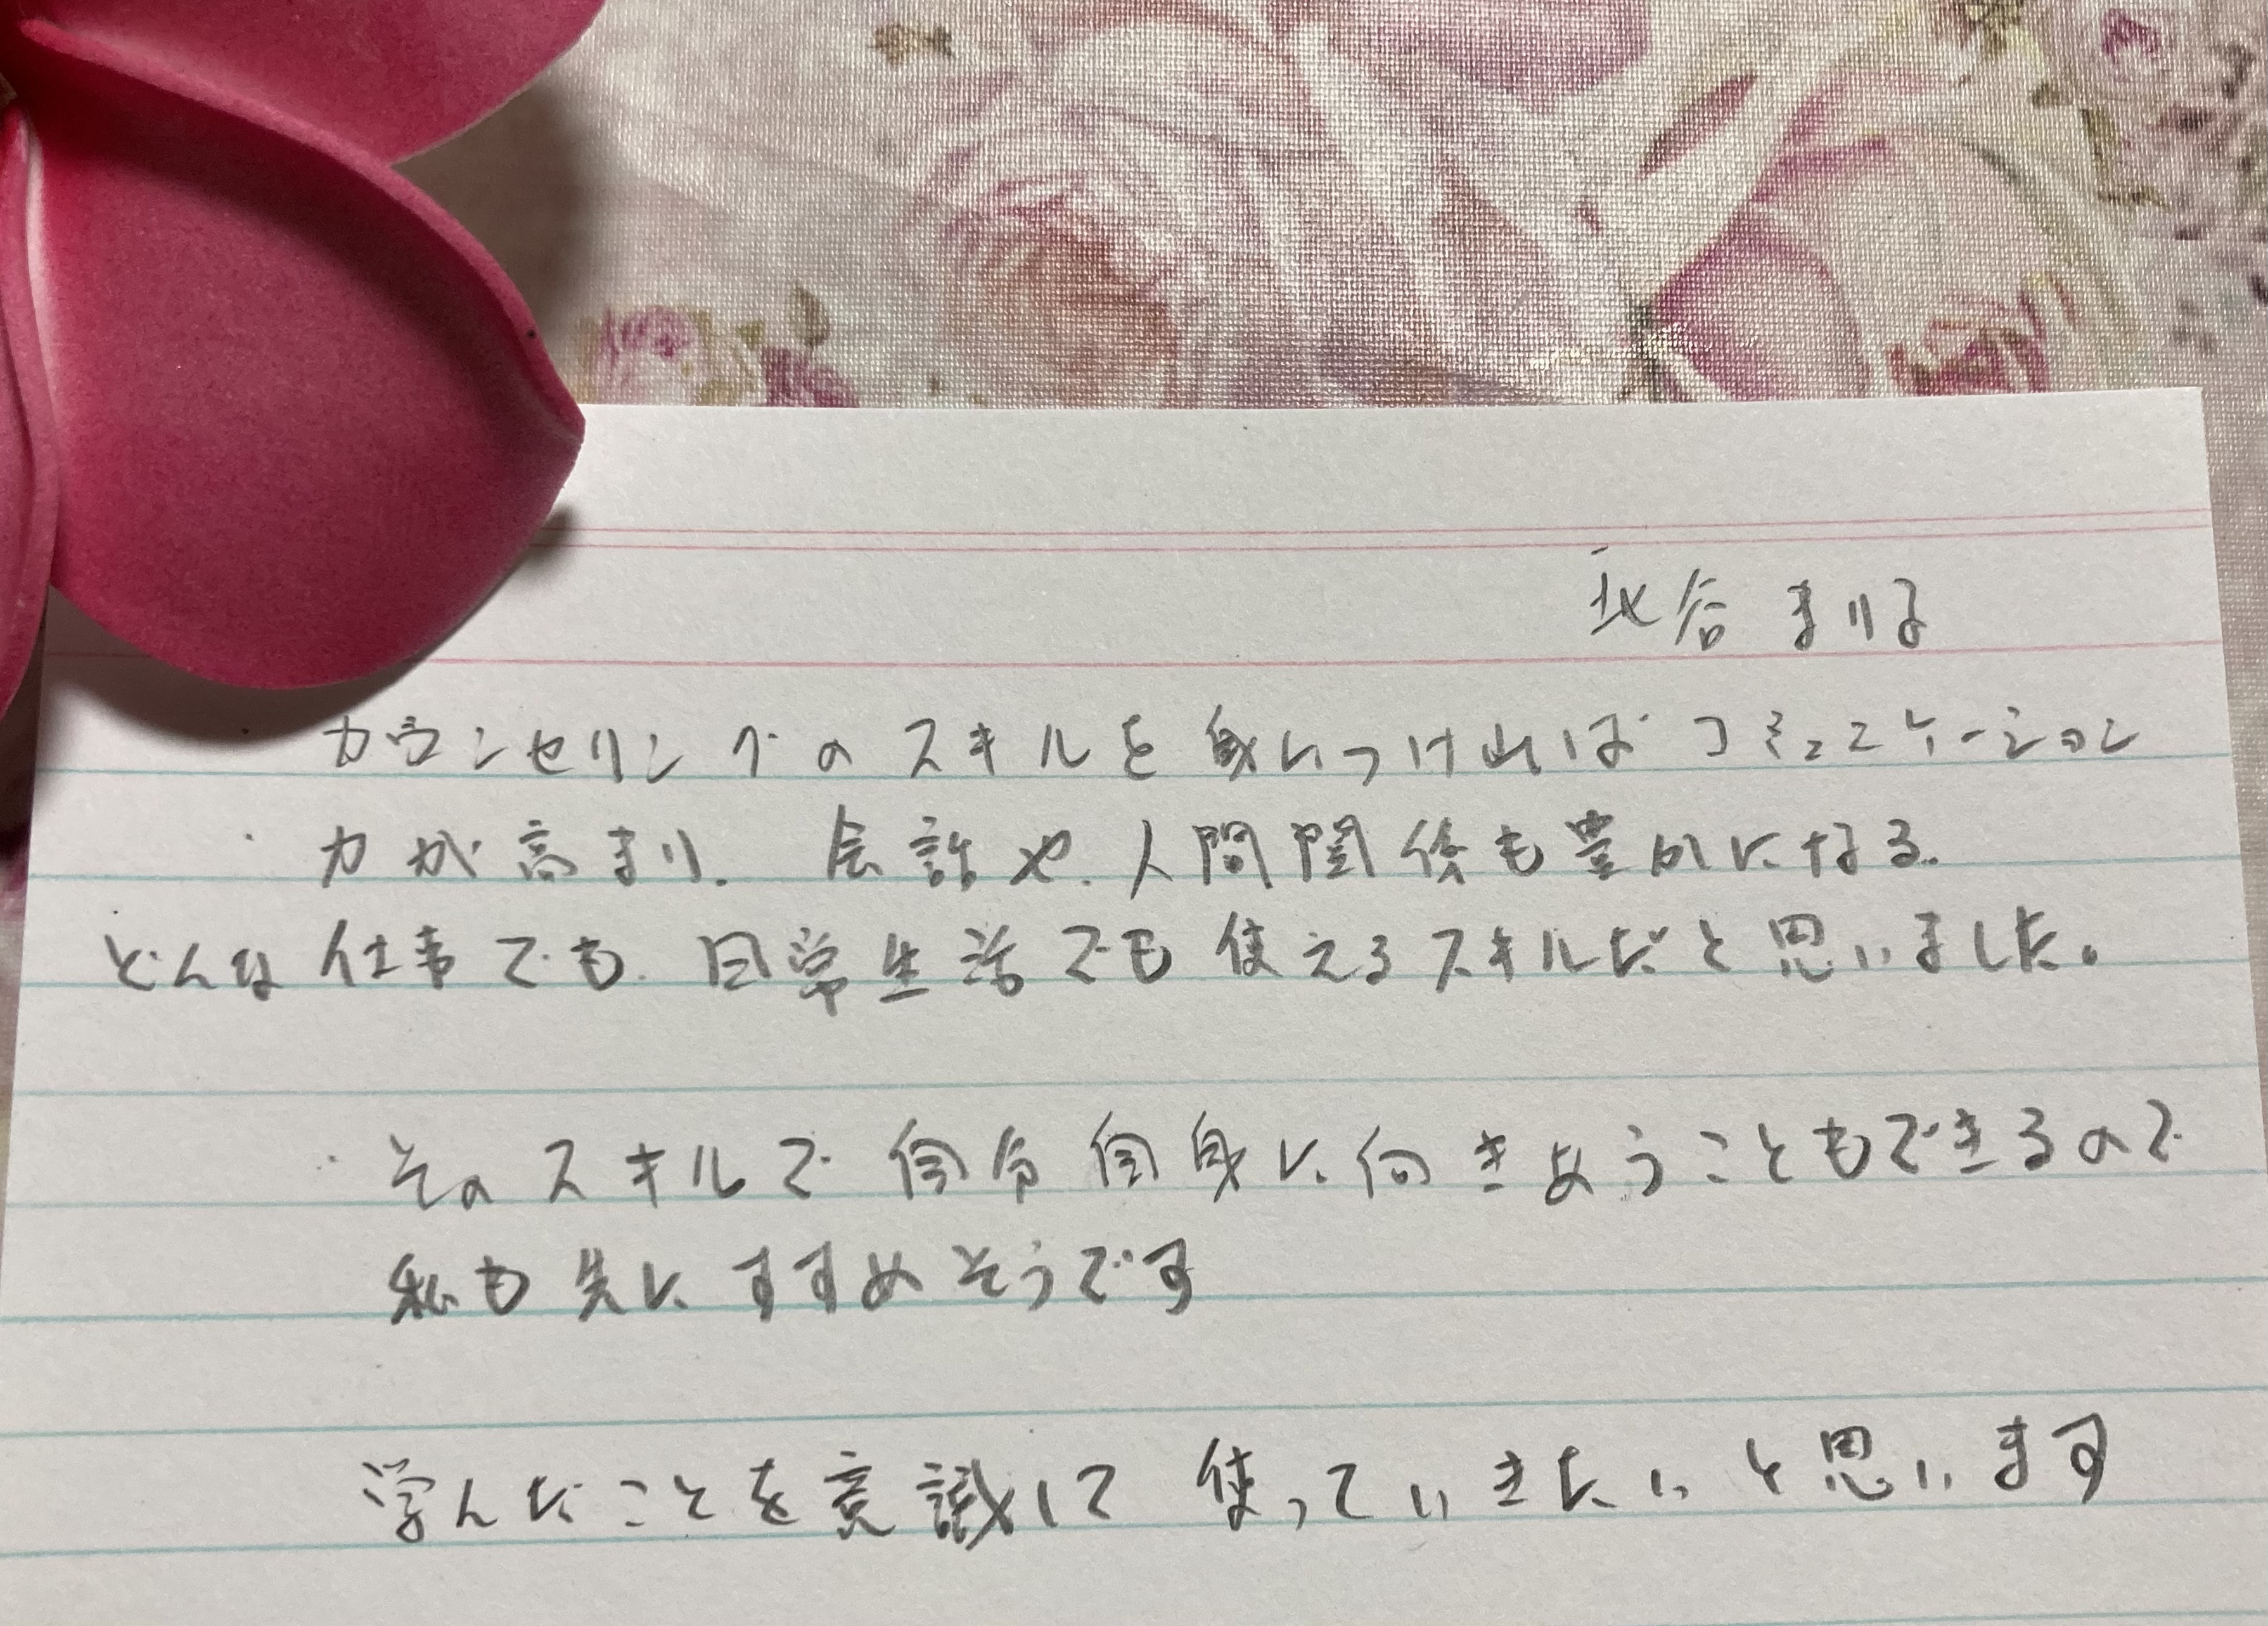 谷 まりな
カウンセリングのスキルを身につければコミュニケーション
力が高まり、会話や、人間関係も豊かになる。
どんな仕事でも、日常生活でも使えるスキルだと思いました。
そのスキルで自分自身に向きようこともできるので
私も先にすすめそうです
学んだことを意識して使っていきたいと思います